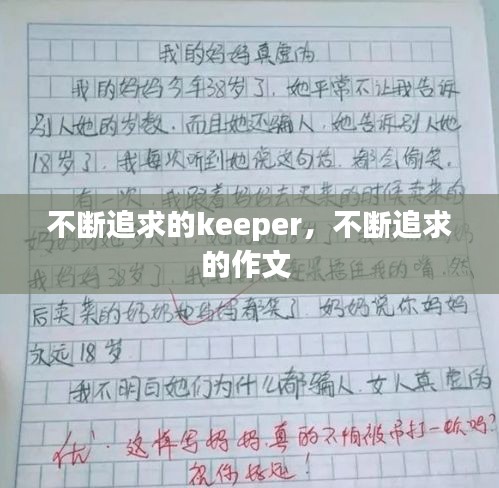 我的妈妈真虚伪
我的妈妈今年38岁了，她平常不让我告诉
别人她的岁数，而且她还骗人，她告诉别人她
18岁了，我每次听到她说这句话，都会偷笑。
有一次，我跟着妈妈去买菜的时候卖菜的
不断追求的keeper，不断追求
的作文
妈妈38岁了，
捂住我的嘴，然
后卖菜的奶奶和妈妈都笑了，奶奶说你妈妈
永远18岁。
我不明白她们为什么都骗人，女人真虚伪
优，这样写妈妈，真的不怕被吊打一顿吗？
祝你好运！